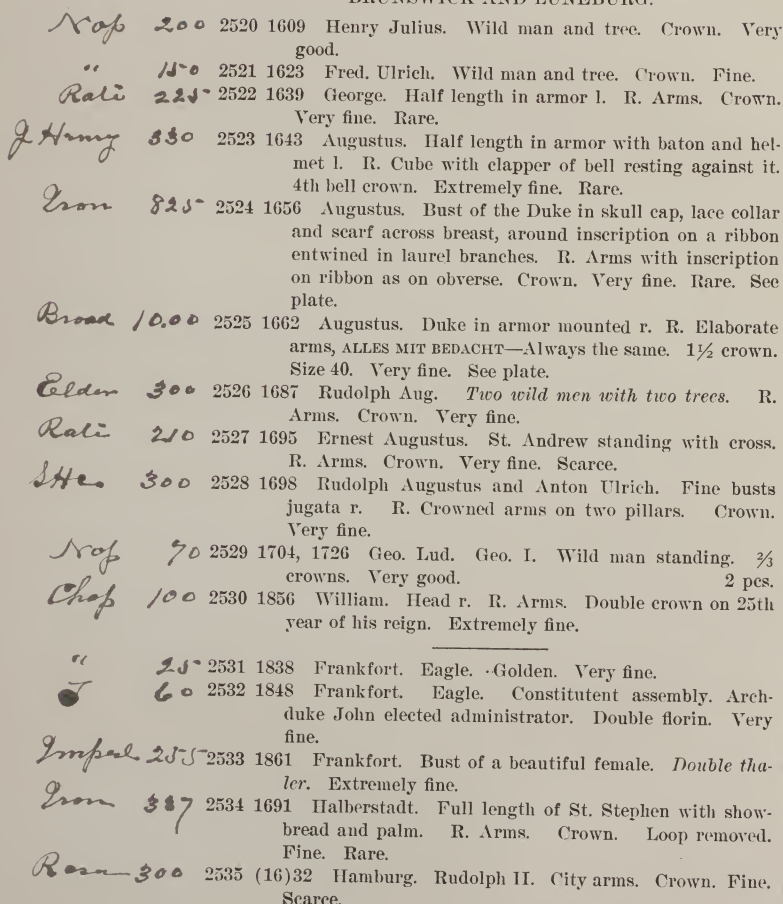 BRUNSWICK AND LUNEBURG.
Nop 200 2520 1609 Henry Julius. Wild man and tree. Crown. Very
good.
" 150 2521 1623 Fred. Ulrich. Wild man and tree. Crown. Fine.
Rati 225 2522 1639 George. Half length in armor l. R. Arms. Crown.
Very fine. Rare.
J Henry 330 2523 1643 Augustus. Half length in armor with baton and hel-
met l. R. Cube with clapper of bell resting against it.
4th bell crown. Extremely fine. Rare.
Iron 825 2524 1656 Augustus. Bust of the Duke in skull cap, lace collar
and scarf across breast, around inscription on a ribbon
entwined in laurel branches. R. Arms with inscription
on ribbon as on obverse. Crown. Very fine. Rare. See
plate.
Broad 10.00 2525 1662 Augustus. Duke in armor mounted r. R. Elaborate
arms, ALLES MIT BEDACHT—Always the same. 1½ crown.
Size 40. Very fine. See plate.
Elder 300 2526 1687 Rudolph Aug. Two wild men with two trees. R.
Arms. Crown. Very fine.
Rati 210 2527 1695 Ernest Augustus. St. Andrew standing with cross.
R. Arms. Crown. Very fine. Scarce.
300 2528 1698 Rudolph Augustus and Anton Ulrich. Fine busts
jugata r. R. Crowned arms on two pillars. Crown.
Very fine.
Nop 70 2529 1704, 1726 Geo. Lud. Geo. I. Wild man standing. ⅔
crowns. Very good. 2 pcs.
Chap 100 2530 1856 William. Head r. R. Arms. Double crown on 25th
year of his reign. Extremely fine.
" 25 2531 1838 Frankfort. Eagle. Golden. Very fine.
60 2532 1848 Frankfort. Eagle. Constitutent assembly. Arch-
duke John elected administrator. Double florin. Very
fine.
255 2533 1861 Frankfort. Bust of a beautiful female. Double tha-
ler. Extremely fine.
Iron 387 2534 1691 Halberstadt. Full length of St. Stephen with show-
bread and palm. R. Arms. Crown. Loop removed.
Fine. Rare.
300 2535 (16)32 Hamburg. Rudolph II. City arms. Crown. Fine.
Scarce.